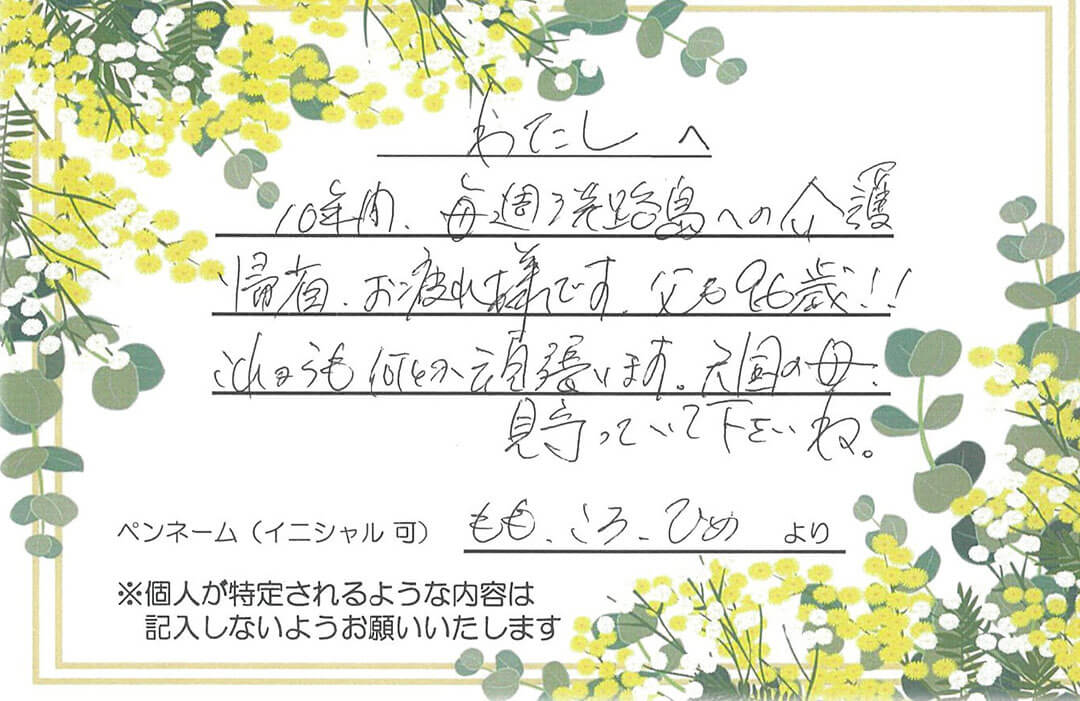 わたし へ
10年間、毎週、淡路島への介護
帰省、お疲れ様です。父も96歳!!
これからも何とか頑張ります。天国の母、
見守っていて下さいね。
ペンネーム（イニシャル 可） もも、ころ、ひめ より
※個人が特定されるような内容は
記入しないようお願いいたします